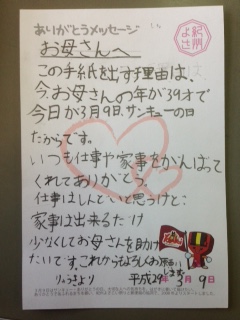 ありがとうメッセージ
お母さんへ
この手紙を出す理由は、
今、お母さんの年が39才で
今日が3月9日、サンキューの日
だからです。
いつも仕事や家事をがんばって
くれてありがとう。
仕事はしんどいと思うけど、
家事は出来るだけ
少なくしてお母さんを助け
たいです。これからもよろしくお願い
します。
りゅうきより
平成29年3月9日